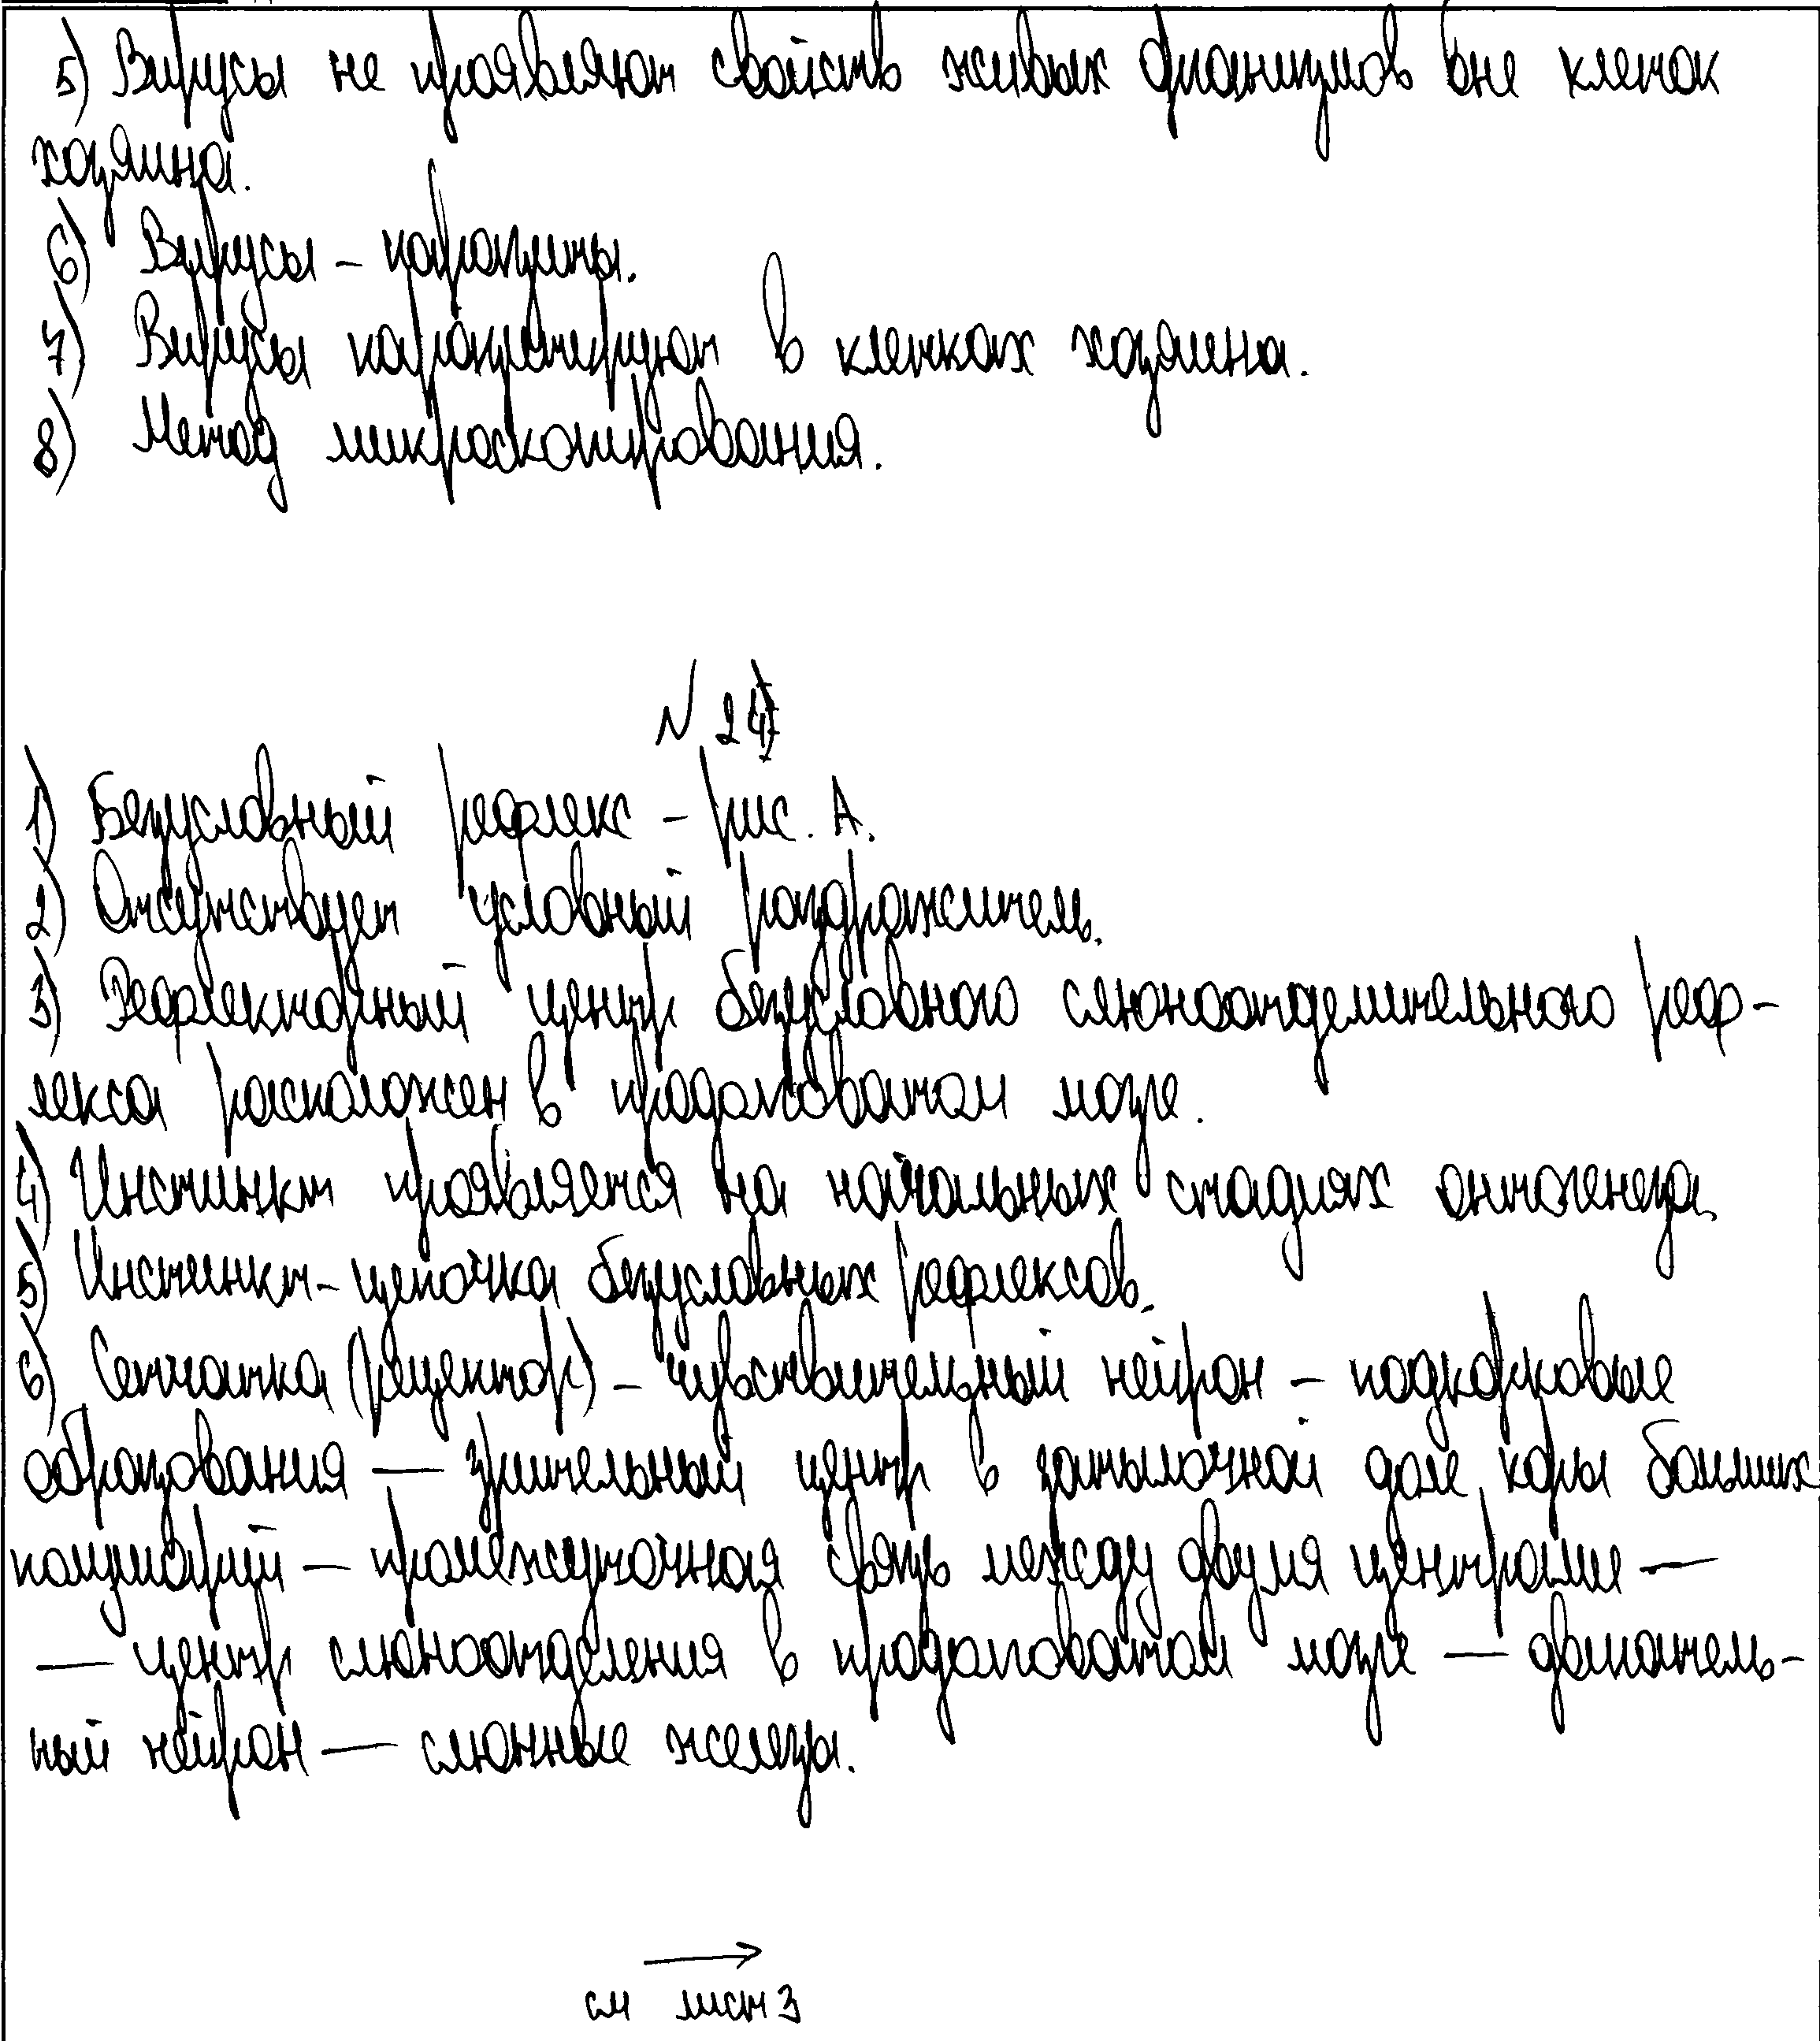 5) Вирусы не проявляют свойств живых организмов вне клеток
хозяина.
6) Вирусы - паразиты.
7) Вирусы паразитируют в клетках хозяина.
8) Метод микроскопирования.
N 24
1) Безусловный рефлекс - рис. А.
2) Отсутствует условный раздражитель.
3) Рефлекторный центр безусловного слюноотделительного реф-
лекса расположен в продолговатом мозге.
4) Инстинкт проявляется на начальных стадиях онтогенеза.
5) Инстинкт - цепочка безусловных рефлексов.
6) Сетчатка (рецептор) - чувствительный нейрон - подкорковые
образования — зрительный центр в затылочной доле коры больших
полушарий — промежуточная связь между двумя центрами —
— центр слюноотделения в продолговатом мозге — двигатель-
ный нейрон — слюнные железы.
→
см лист 3